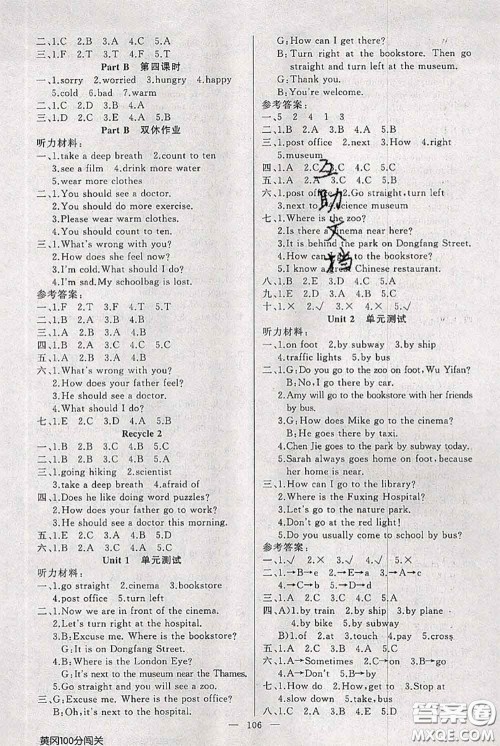 二、1.C 2.D 3.A 4.C 5.A
三、1.F 2.T 3.F 4.T 5.F
Part B 第四课时
一、1.sorry 2.worried 3.hungry 4.happy
5.cold 6.bad 7.warm
三、1.C 2.D 3.B 4.A
Part B 双休作业
听力材料：
一、1.take a deep breath 2.count to ten
3.see a film 4.drink more water
5.wear more clothes
二、1.You should see a doctor.
2.You should do more exercise.
3.Please wear warm clothes.
4.You should count to ten.
三、1.What's wrong with you?
2.How does she feel now?
3.I'm cold. What should I do?
4.I'm sad. My schoolbag is lost.
参考答案：
一、1.F 2.T 3.F 4.T 5.F
三、1.B 2.A 3.B 4.A
四、1.C 2.A 3.C 4.A 5.B
五、1.E 2.D 3.C 4.B 5.A
六、1.What's wrong with you?
2.How does your father feel?
3.He should see a doctor.
4.What should I do?
七、1.E 2.D 3.C 4.A 5.B
Recycle 2
一、1.B 2.C 3.C 4.B 5.A
三、1.going hiking 2.scientist
3.take a deep breath 4.afraid of
四、1.Does he like doing word puzzles?
2.How does your father go to work?
3.He should see a doctor this morning.
五、1.D 2.A 3.C 4.B
六、1.B 2.A 3.A 4.B 5.C
Unit 1 单元测试
听力材料：
一、1.go straight 2.cinema 3.bookstore
4.post office 5.turn left
二、1.Now we are in front of the cinema.
2.Let's turn right at the hospital.
3.B:Excuse me. Where is the bookstore?
G:It is on Dongfang Street.
4.B:Where is the London Eye?
G:It's next to the museum near the Thames.
5.Go straight and you will see a zoo.
三、G:Excuse me. Where is the post office?
B:Oh, it's next to the hospital.
G:How can I get there?
B:Turn right at the bookstore. Then go
straight and turn left at the museum.
G:Thank you.
B:You're welcome.
参考答案：
一、5 2 4 1 3
三、1.B 2.A
四、1.A 2.C
五、1.A 2.D
2.Go straight, turn left
七、1.Where is the zoo?
2.Is there a cinema near here?
3.It is behind the park on Dongfang Street.
4.How can I get to the bookstore?
5.I know a Chinese restaurant.
八、1.B 2.E 3.A 4.D 5.C
十、1.× 2.× 3.√ 4.√ 5.×
Unit 2 单元测试
听力材料：
一、1.on foot 2.by subway 3.by ship
4.traffic lights 5.by bus
二、1.G:Do you go to the zoo on foot, Wu Yifan?
B:No. I go there by car.
2.Amy will go to the bookstore with her friends
by bus.
3.G:How does Mike go to the cinema?
B:He goes there by taxi.
4.Chen Jie goes to the park by subway today.
5.Sarah always goes home on foot because
her home is near.
三、1.How can I go to the library?
2.B:Where is the Fuxing Hospital?
3.G:Let's go to the nature park.
4.Don't go at the red light!
5.Do you usually come to school by bus?
参考答案：
一、1.√ 2.× 3.× 4.√ 5.√
二、1.→B→e 2.→D→a 3.→E→c
4.→A→b 5.→C→d
三、1.C 2.A 3.A 4.B 5.A
四、A)1.by train 2.by ship 3.by plane
4.by bike 5.by subway
B)1.of 2.at 3.touch 4.pay 5.cross
五、1.A 2.C 3.D 4.B 5.C
六、1.A→Sometimes 2.C→by
3.A→Don't 4.A→How 5.C→go
七、1.C 2.A 3.B 4.A 5.A
八、1.C 2.E 3.D 4.A 5.B
互助文档
106
黄冈100分闯关
答案圈
MXQE.COM